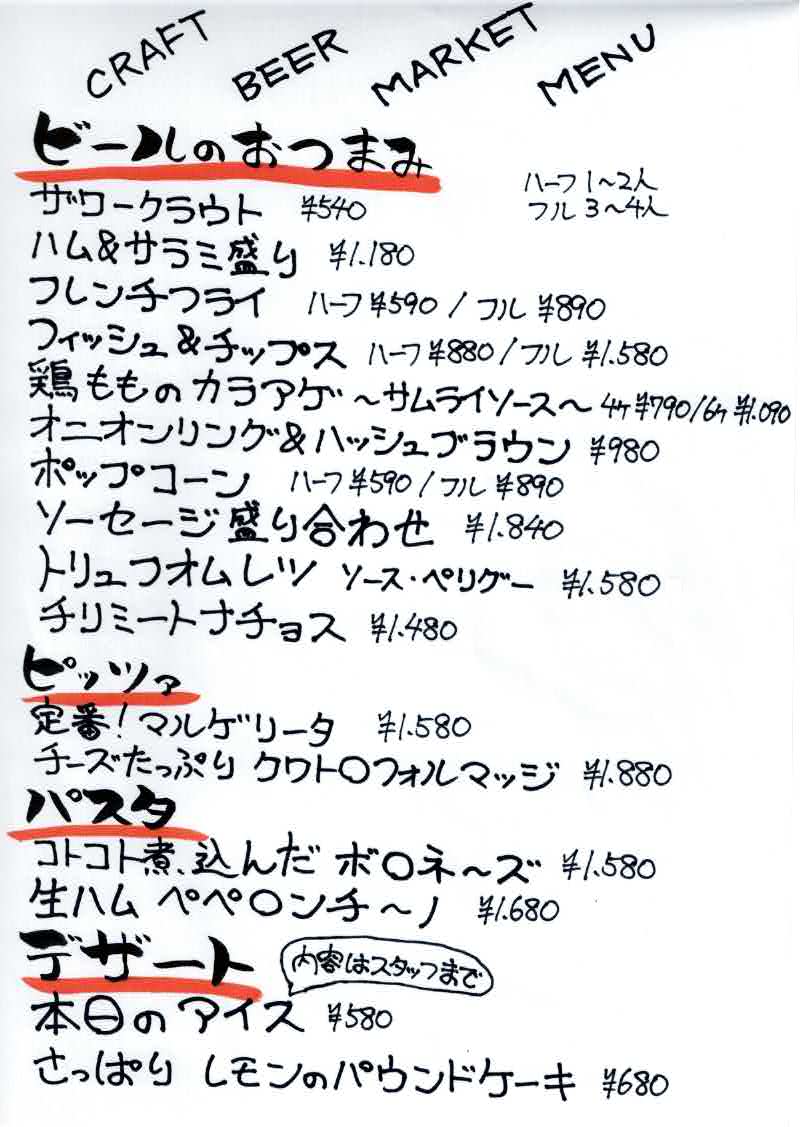 CRAFT BEER MARKET MENU
ビールのおつまみ
ハーフ 1〜2人
フル 3〜4人
ザワークラウト ¥540
ハム&サラミ盛り ¥1.180
フレンチフライ ハーフ ¥590 / フル ¥890
フィッシュ&チップス ハーフ ¥880 / フル ¥1.580
鶏もものカラアゲ〜サムライソース〜 4ヶ ¥790/6ヶ ¥1.090
オニオンリング&ハッシュブラウン ¥980
ポップコーン ハーフ ¥590 / フル ¥890
ソーセージ盛り合わせ ¥1.840
トリュフオムレツ ソース・ペリグー ¥1.580
チリミートナチョス ¥1.480
ピッツァ
定番!マルゲリータ ¥1.580
チーズたっぷり クワトロフォルマッジ ¥1.880
パスタ
コトコト煮込んだ ボロネ〜ズ ¥1.580
生ハム ペペロンチ〜ノ ¥1.680
デザート
内容はスタッフまで
本日のアイス ¥580
さっぱり レモンのパウンドケーキ ¥680